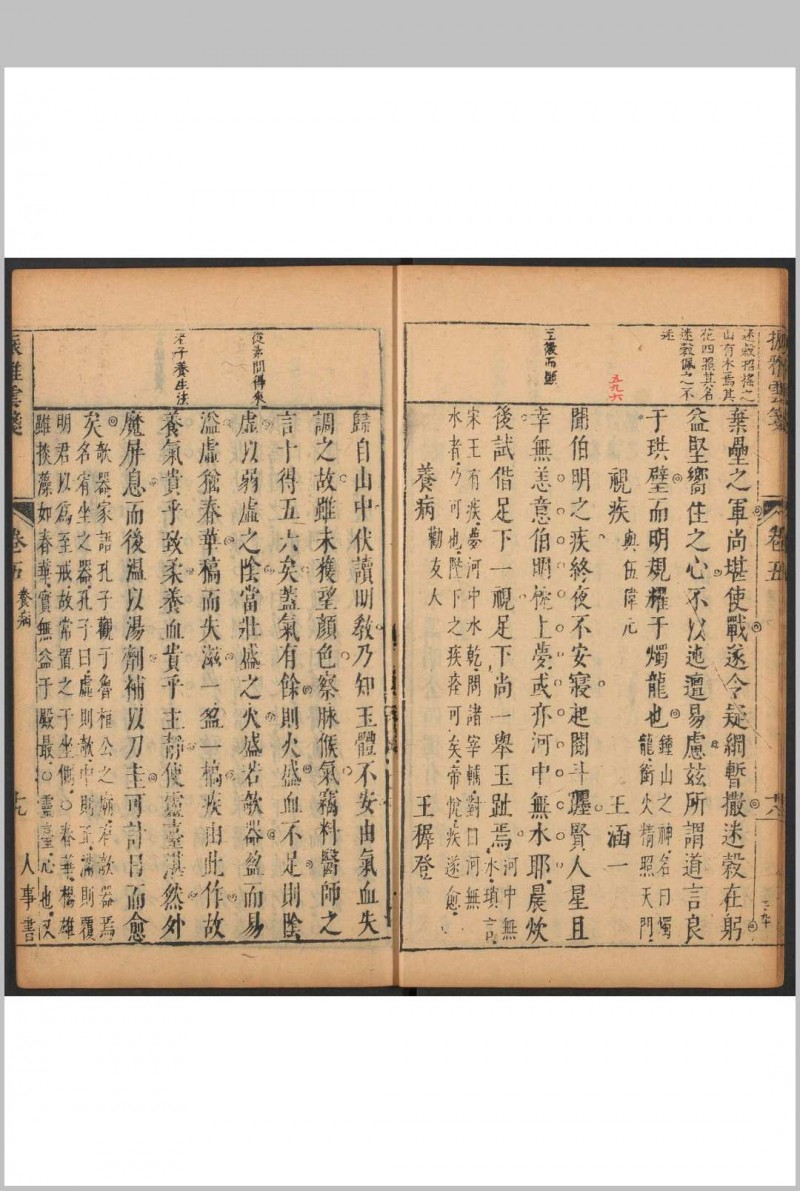 迷穀招搖之
山有木焉其
花四照其名
迷穀佩之不
迷
棄壘之軍尚堪使戰遂令疑網暫撤迷穀在躬
益堅嚮往之心不以迍邅易慮茲所謂道言良
于珙璧而明規耀于燭龍也
鍾山之神名曰燭
龍銜火精照天門
視疾
與伍偉元
王涵一
五九六
聞伯明之疾終夜不安寢起闚斗躔賢人星且
幸無恙意伯明榻上夢或亦河中無水耶晨炊
後試借足下一視足下尚一舉玉趾焉
河中無
水瑣言
宋王有疾夢河中水乾問諸宰輔對曰河無
水者乃可也陛下之疾痊可矣帝悅疾遂愈
養病
勸友人
王穉登
歸自山中伏讀明教乃知玉體不安由氣血失
調之故雖未獲望顏色察脉候氣竊料醫師之
言十得五六矣蓋氣有餘則火盛血不足則陰
從素問得來
虛以弱虛之陰當壯盛之火盛若欹器盈而易
溢虛猶春華稿而失滋一盈一槁疾由此作故
養氣貴乎致柔養血貴乎主靜使靈臺湛然外
老子養生法
魔屏息而後溫以湯劑補以刀圭可計日而愈
矣
欹器家語孔子觀于魯桓公之廟有欹器焉
名宥坐之器孔子曰虛則欹中則正滿則覆
明君以爲至戒故常置之于坐側○春華楊雄
雖掞藻如春華實無益于殿最○靈臺心也又
卷五
養病
十九
人事書
卷五